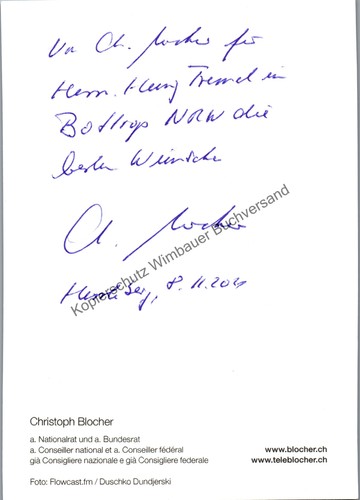 Von Ch. Blocher für
Herrn
Bottrop NRW die
besten Wünsche
Ch. Blocher
Herrliberg, 8.11.20
Kopierschutz Wimbauer Buchversand
Christoph Blocher
a. Nationalrat und a. Bundesrat
a. Conseiller national et a. Conseiller fédéral
già Consigliere nazionale e già Consigliere federale
www.blocher.ch
www.teleblocher.ch
Foto: Flowcast.fm / Duschko Dundjerski